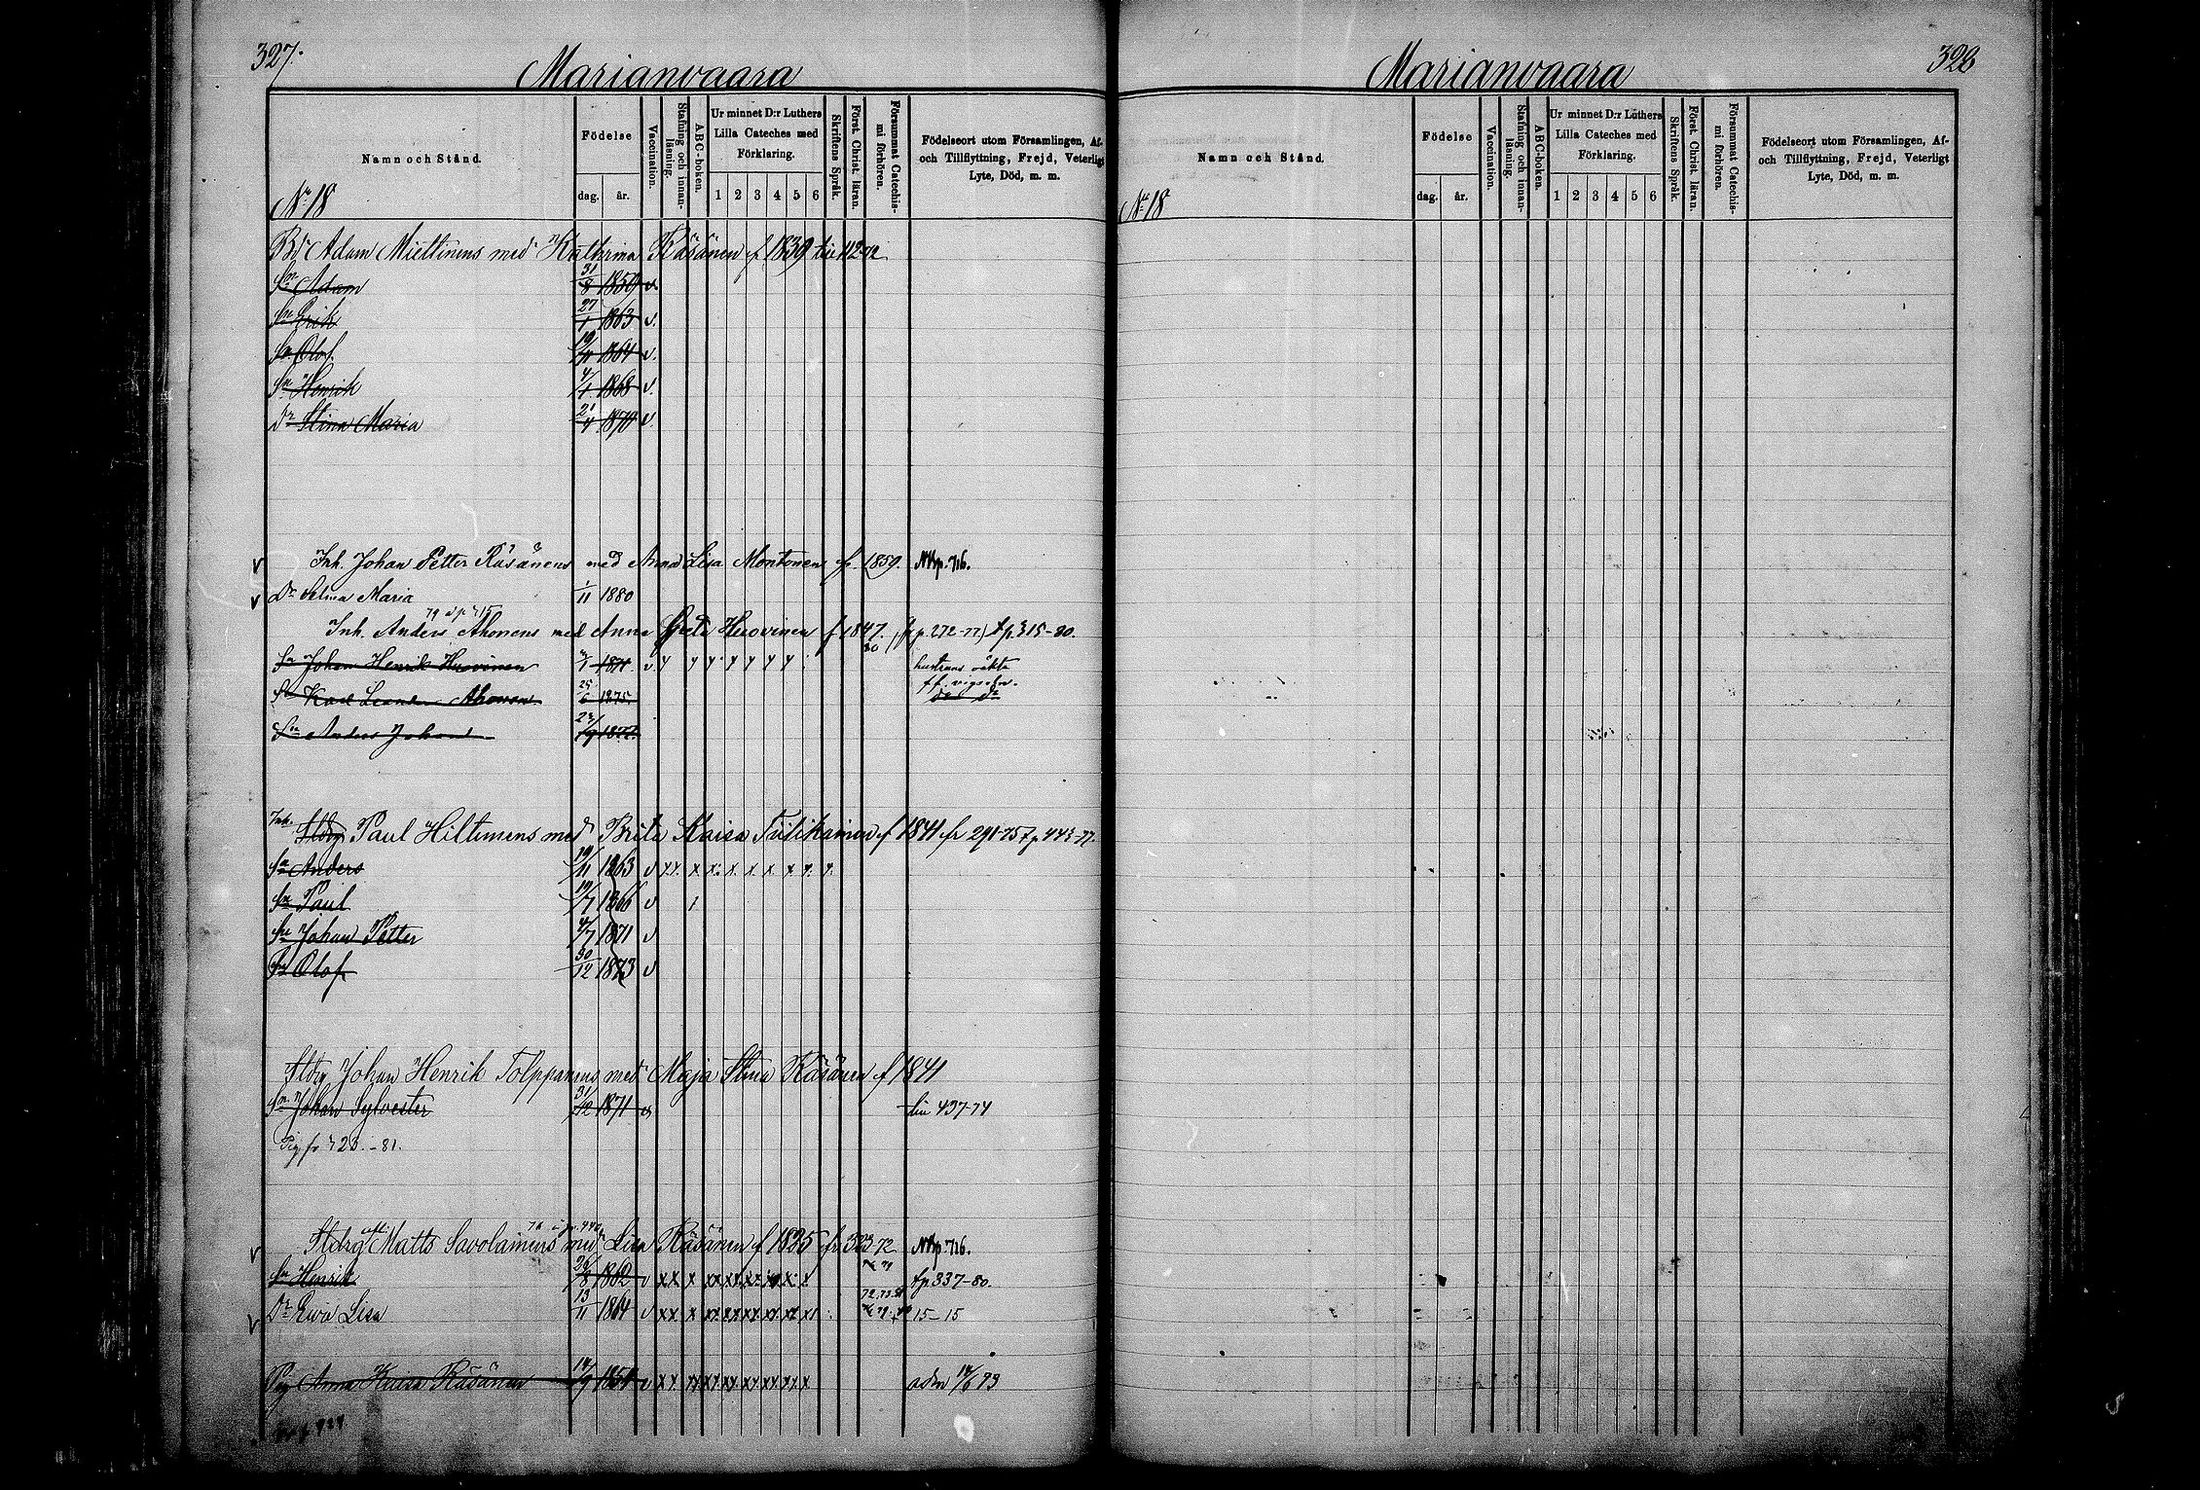 327.
Marianvaara
Namn och Stånd.
Födelse
dag.
år.
Vaccination.
Stafning och innanläsning.
ABC-boken.
Ur minnet D:r Luthers
Lilla Cateches med
Förklaring.
1 2 3 4 5 6
Skriftens Språk.
Först. Christ. läran.
Försummat Catechismi förhören.
Födelseort utom Församlingen, Af-
och Tillflyttning, Frejd, Veterligt
Lyte, Död, m. m.
No 18
Bdr Adam Miettinens med Kathrina Räsänen f 1839
Sn Adam 31/8 1859 v.
Sn Erik 27/1 1863 v.
Sn Olof 1864 v.
Sn Henrik 4/1 1868 v.
Dr Stina Maria 2/4 1870 v
v Inh. Johan Petter Räsänens med Anna Lisa Montonen f. 1859. p. 716.
v Dr Selma Maria 1/11 1880
79 715
Inh. Anders Ahonens med Anna Greta Huovinen f 1847. fr p. 272-77) t p. 315-80.
Sn Johan Henrik Huovinen 1871. v 80 hustruns oäkta
ff. vigseln.
Sn Karl Leander Ahonen 25/6 1875
Sn Anders Johan
Inh. Stdrg Paul Hiltunens med Brita Kaisa Tiitikainen f 1841 fr 291-75 t p 443-77.
Sn Anders 19/11 1863 v
Sn Paul 19/7 1866 v
Sn Johan Petter 4/7 1871 v
Sn Olof 30/12 1873 v
Stdrg Johan Henrik Tolppanens med Maja Stina Räsänen f 1841
Sn Johan Sylvester 31/12 1871 v till 437-74
Pig fr 720.-81.
v Stdrg Matts Savolainens med Lisa Räsänen f 1835 fr 503-72 p. 716.
Sn Henrik 1862 v xx x t p 337-80.
v Dr Eva Lisa 13/11 1864 v xx x 15-15
Pig Anna Kaisa Räsänen 1854 v adm 73
Marianvaara
328
Namn och Stånd.
Födelse
dag.
år.
Vaccination.
Stafning och innanläsning.
ABC-boken.
Ur minnet D:r Luthers
Lilla Cateches med
Förklaring.
1 2 3 4 5 6
Skriftens Språk.
Först. Christ. läran.
Försummat Catechismi förhören.
Födelseort utom Församlingen, Af-
och Tillflyttning, Frejd, Veterligt
Lyte, Död, m. m.
No 18